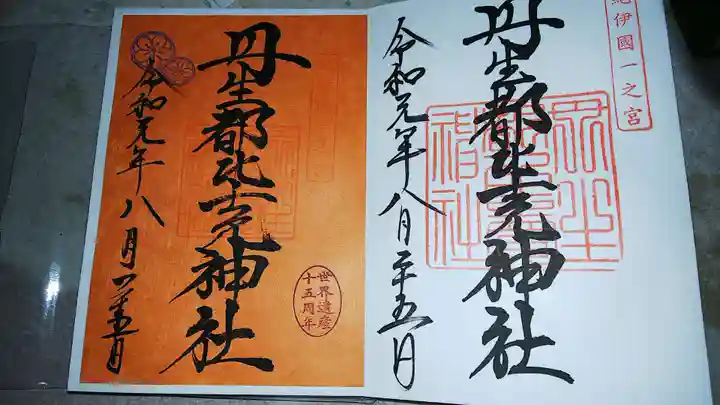 紀伊國一之宮
丹生都比売神社
令和元年八月二十五日
丹生都比売神社
世界遺産
十五周年
令和元年八月二十五日